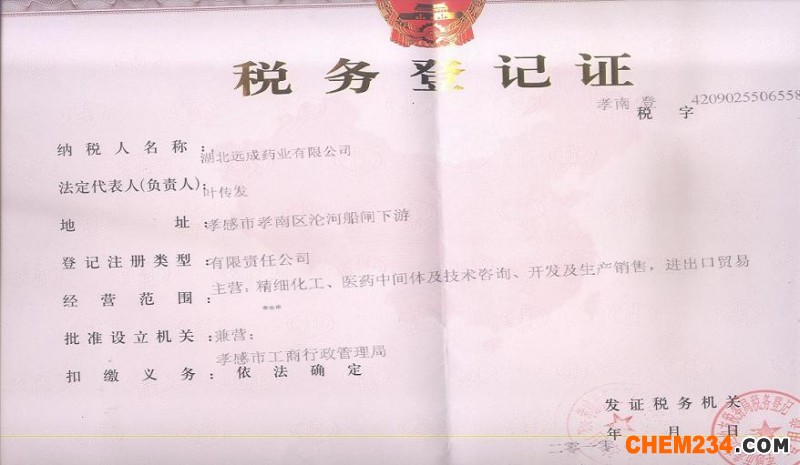 税务登记证
孝南 登 4209025506558
税 字
纳税人名称：湖北远成药业有限公司
法定代表人(负责人)：叶传发
地 址：孝感市孝南区沦河船闸下游
登记注册类型：有限责任公司
主营：精细化工、医药中间体及技术咨询、开发及生产销售，进出口贸易
经营范围：
批准设立机关：兼营：
孝感市工商行政管理局
扣缴义务：依法确定
发证税务机关
年 月 日
二零一零
CHEM234.COM